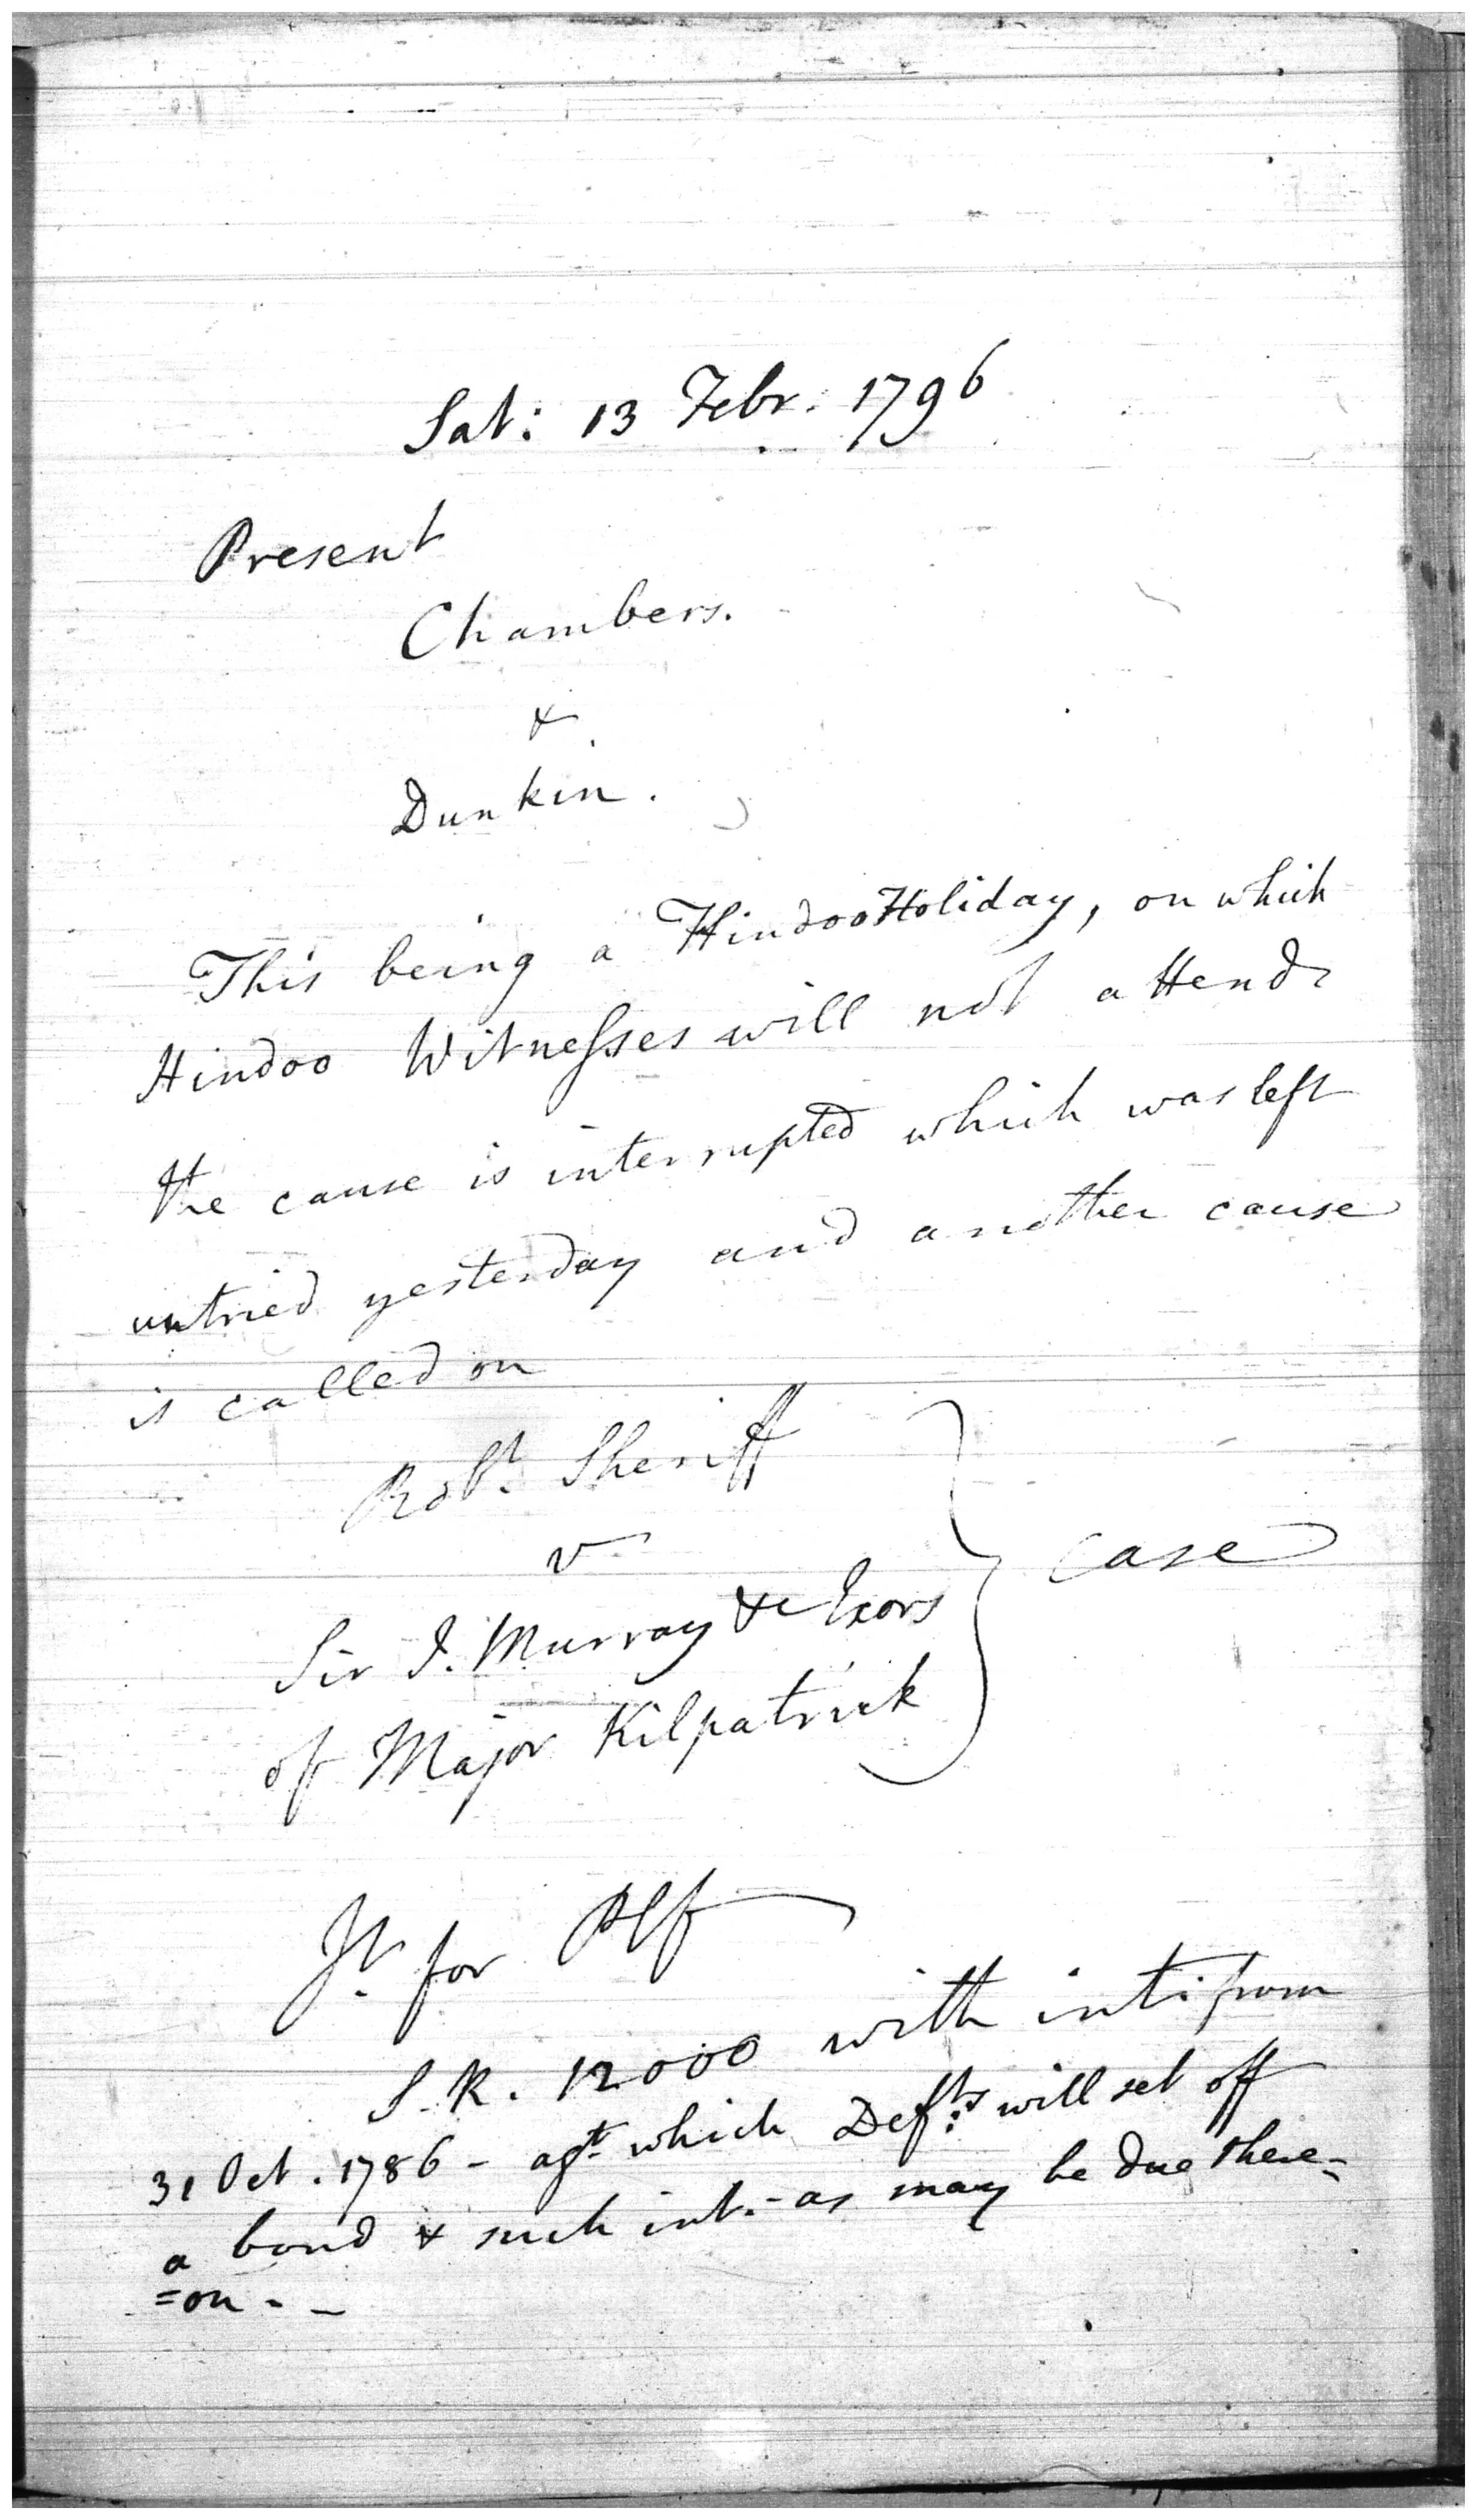 Sat: 13 Febr. 1796
Present
Chambers.
&
Dunkin.
This being a Hindoo Holiday, on which
Hindoo Witnesses will not attend
the cause is interrupted which was left
untried yesterday and another cause
is called on
Robt. Sheriff
v
Sir J. Murray &c Exors
of Major Kilpatrick
case
Jt. for Plf
S.R. 12000 with int. from
31 Oct. 1786 - agt. which Defts. will set off
a bond & such int. as may be due there-
=on - -